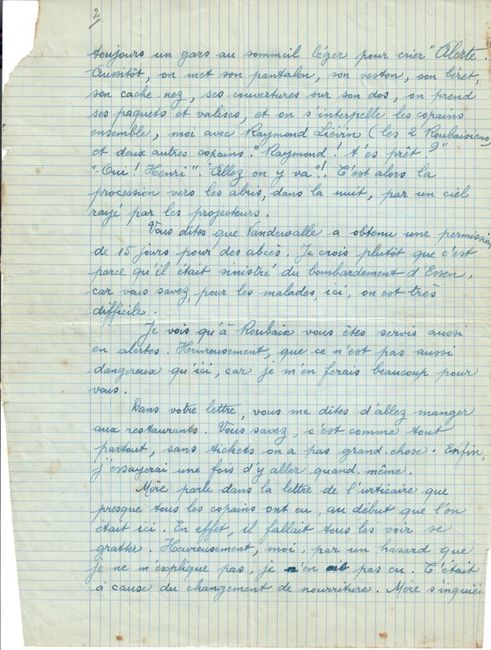 2
toujours un gars au sommeil léger pour crier "Alerte".
Aussitôt, on met son pantalon, son veston, son béret,
son cache nez, ses couvertures sur son dos, on prend
ses paquets et valises, et on s'interpelle les copains
ensemble, moi avec Raymond Liévin (les 2 Roubaisiens
et deux autres copains. "Raymond ! t'es prêt ?"
"Oui ! Henri". "Allez on y va"! C'est alors la
procession vers les abris, dans la nuit, par un ciel
rayé par les projecteurs.
Vous dites que Vandewalle a obtenu une permission
de 15 jours pour des abcès. Je crois plutôt que c'est
parce qu'il était sinistré du bombardement d'Essen,
car vous savez, pour les malades, ici, on est très
difficile.
Je vois qu'à Roubaix vous êtes servis aussi
en alertes. Heureusement, que ce n'est pas aussi
dangereux qu'ici, car je m'en ferais beaucoup pour
vous.
Dans votre lettre, vous me dites d'allez manger
aux restaurants. Vous savez, c'est comme tout
partout, sans tickets on a pas grand chose. Enfin,
j'essayerai une fois d'y aller quand même.
Mère parle dans la lettre de l'urticaire que
presque tous les copains ont eu, au début que l'on
était ici. En effet, il fallait tous les voir se
gratter. Heureusement, moi, par un hasard que
je ne m'explique pas, je n'en ai pas eu. C'était
à cause du changement de nourriture. Mère s'inquiè